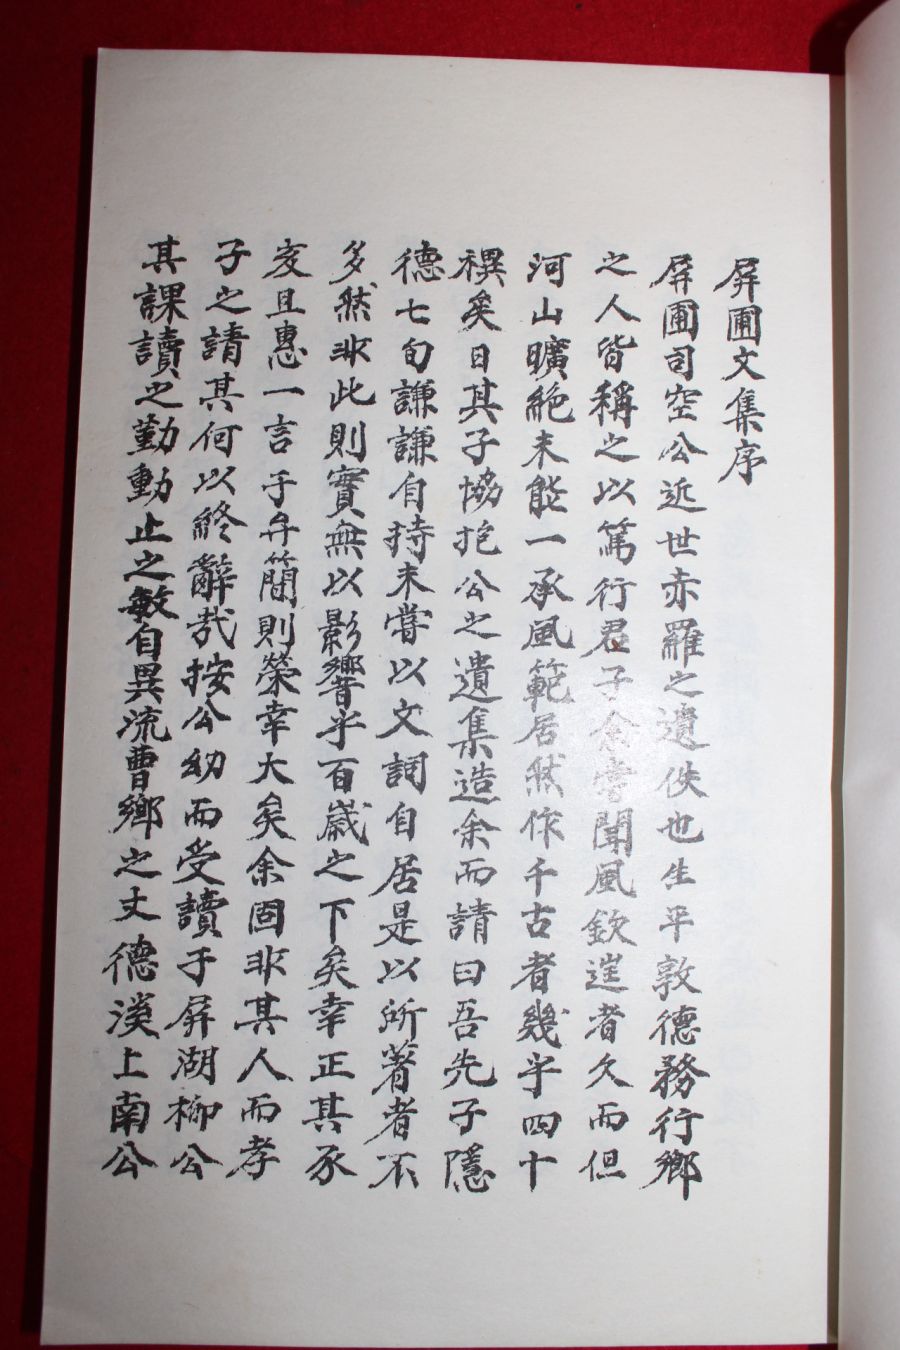 屛圃文集序
屛圃司空公近世赤羅之遺佚也生平敦德務行鄉
之人皆稱之以篤行君子余嘗聞風欽𨓏者久而但
河山曠絶未能一承風範居然作千古者幾乎四十
禩矣日其子協抱公之遺集造余而請曰吾先子隱
德七旬謙謙自持未嘗以文詞自居是以所著者不
多然非此則實無以影響乎百歲之下矣幸正其豕
亥且惠一言于弁簡則榮幸大矣余固非其人而孝
子之請其何以終辭哉按公幼而受讀于屛湖柳公
其課讀之勤動止之敏自異流曹鄉之丈德渼上南公